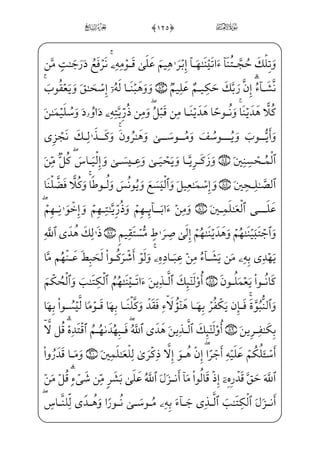 الجزء السابع ﴿١٢٥﴾ سورة الأنعام
وَتِلْكَ حُجَّتُنَآ ءَاتَيْنَٰهَآ إِبْرَٰهِيمَ عَلَىٰ قَوْمِهِۦ ۚ نَرْفَعُ دَرَجَٰتٍ مَّن
نَّشَآءُ ۗ إِنَّ رَبَّكَ حَكِيمٌ عَلِيمٌ ﴿٨٣﴾ وَوَهَبْنَا لَهُۥٓ إِسْحَٰقَ وَيَعْقُوبَ ۚ
كُلًّا هَدَيْنَا ۚ وَنُوحًا هَدَيْنَا مِن قَبْلُ ۖ وَمِن ذُرِّيَّتِهِۦ دَاوُۥدَ وَسُلَيْمَٰنَ
وَأَيُّوبَ وَيُوسُفَ وَمُوسَىٰ وَهَٰرُونَ ۚ وَكَذَٰلِكَ نَجْزِى
ٱلْمُحْسِنِينَ ﴿٨٤﴾ وَزَكَرِيَّا وَيَحْيَىٰ وَعِيسَىٰ وَإِلْيَاسَ ۖ كُلٌّ مِّنَ
ٱلصَّٰلِحِينَ ﴿٨٥﴾ وَإِسْمَٰعِيلَ وَٱلْيَسَعَ وَيُونُسَ وَلُوطًا ۚ وَكُلًّا فَضَّلْنَا
عَلَى ٱلْعَٰلَمِينَ ﴿٨٦﴾ وَمِنْ ءَابَآئِهِمْ وَذُرِّيَّٰتِهِمْ وَإِخْوَٰنِهِمْ ۖ
وَٱجْتَبَيْنَٰهُمْ وَهَدَيْنَٰهُمْ إِلَىٰ صِرَٰطٍ مُّسْتَقِيمٍ ﴿٨٧﴾ ذَٰلِكَ هُدَى ٱللَّهِ
يَهْدِى بِهِۦ مَن يَشَآءُ مِنْ عِبَادِهِۦ ۚ وَلَوْ أَشْرَكُوا۟ لَحَبِطَ عَنْهُم مَّا
كَانُوا۟ يَعْمَلُونَ ﴿٨٨﴾ أُو۟لَٰٓئِكَ ٱلَّذِينَ ءَاتَيْنَٰهُمُ ٱلْكِتَٰبَ وَٱلْحُكْمَ
وَٱلنُّبُوَّةَ ۚ فَإِن يَكْفُرْ بِهَا هَٰٓؤُلَآءِ فَقَدْ وَكَّلْنَا بِهَا قَوْمًا لَّيْسُوا۟ بِهَا
بِكَٰفِرِينَ ﴿٨٩﴾ أُو۟لَٰٓئِكَ ٱلَّذِينَ هَدَى ٱللَّهُ ۖ فَبِهُدَىٰهُمُ ٱقْتَدِهْ ۗ قُل لَّآ
أَسْـَٔلُكُمْ عَلَيْهِ أَجْرًا ۖ إِنْ هُوَ إِلَّا ذِكْرَىٰ لِلْعَٰلَمِينَ ﴿٩٠﴾ وَمَا قَدَرُوا۟
ٱللَّهَ حَقَّ قَدْرِهِۦٓ إِذْ قَالُوا۟ مَآ أَنزَلَ ٱللَّهُ عَلَىٰ بَشَرٍ مِّن شَىْءٍ ۗ قُلْ مَنْ
أَنزَلَ ٱلْكِتَٰبَ ٱلَّذِى جَآءَ بِهِۦ مُوسَىٰ نُورًا وَهُدًى لِّلنَّاسِ ۖ